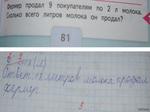 Фермер продал 9 покупателям по 2 л молока.
Сколько всего литров молока он продал?
81
Ответ: литров молока продал
фермер.